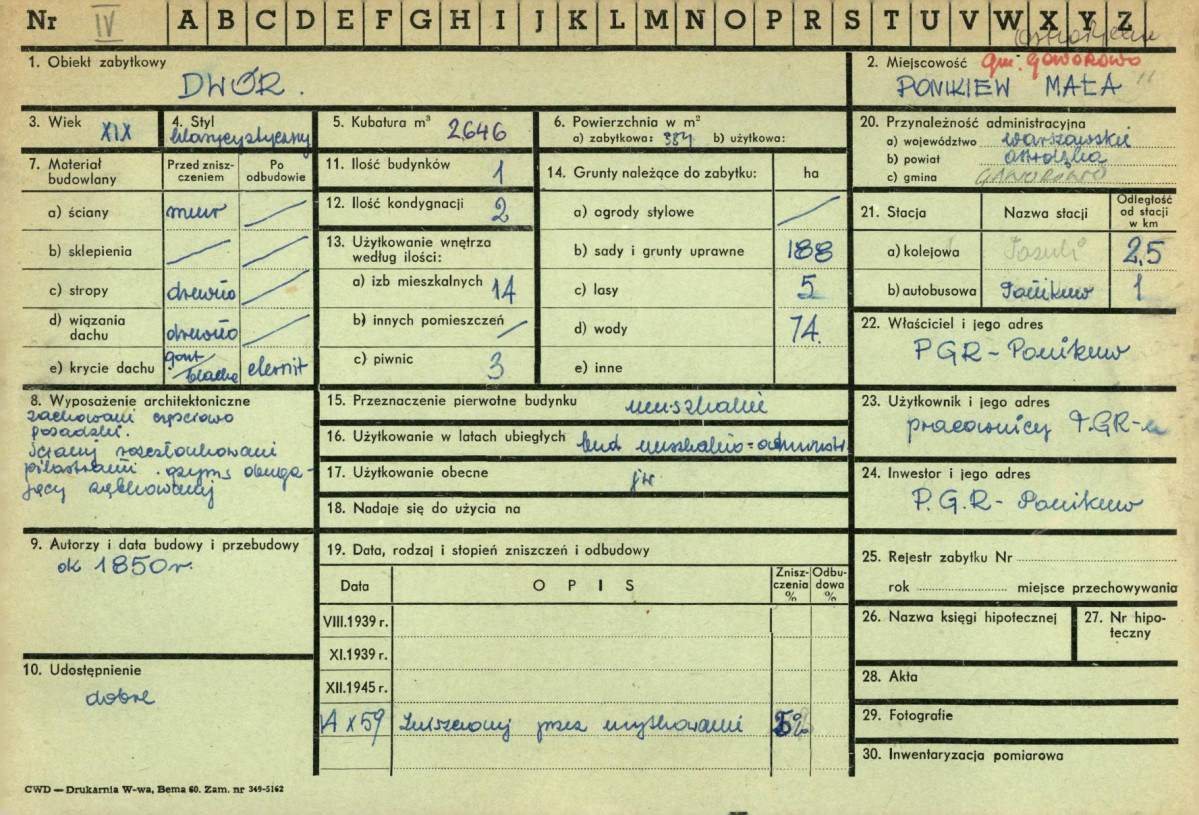 Nr IV A B C D E F G H I J K L M N O P R S T U V W X Y Z
1. Obiekt zabytkowy
DWÓR.
2. Miejscowość gm. GAWOROWO
PONIKIEW MAŁA
3. Wiek XIX
4. Styl
klasycystyczny
5. Kubatura m³ 2646
6. Powierzchnia w m²
a) zabytkowa: 384 b) użytkowa:
20. Przynależność administracyjna
a) województwo warszawskie
b) powiat
c) gmina GAWOROWO
7. Materiał budowlany
Przed zniszczeniem
Po odbudowie
a) ściany mur /
b) sklepienia / /
c) stropy drewno /
d) wiązania dachu drewno /
e) krycie dachu gont/blacha eternit
11. Ilość budynków 1
12. Ilość kondygnacji 2
13. Użytkowanie wnętrza według ilości:
a) izb mieszkalnych 14
b) innych pomieszczeń /
c) piwnic 3
14. Grunty należące do zabytku: ha
a) ogrody stylowe /
b) sady i grunty uprawne 188
c) lasy 5
d) wody 74
e) inne
21. Stacja Nazwa stacji Odległość od stacji w km
a) kolejowa 2,5
b) autobusowa 1
22. Właściciel i jego adres
PGR - Ponikiew
8. Wyposażenie architektoniczne
zachowane częściowo
posadzki.
Ściany rozczłonkowane
pilastrami. gzyms obiega-
jący ząbkowany
15. Przeznaczenie pierwotne budynku mieszkalne
16. Użytkowanie w latach ubiegłych bud mieszkalno=administr.
17. Użytkowanie obecne jw
18. Nadaje się do użycia na
23. Użytkownik i jego adres
pracownicy PGR-u
24. Inwestor i jego adres
P.G.R - Ponikiew
9. Autorzy i data budowy i przebudowy
ok 1850 r.
19. Data, rodzaj i stopień zniszczeń i odbudowy
Data OPIS Zniszczenia % Odbudowa %
VIII.1939 r.
XI.1939 r.
XII.1945 r.
14 X 59 Zniszczony przez użytkowanie 5%
10. Udostępnienie
dobre
25. Rejestr zabytku Nr
rok miejsce przechowywania
26. Nazwa księgi hipotecznej
27. Nr hipoteczny
28. Akta
29. Fotografie
30. Inwentaryzacja pomiarowa
CWD — Drukarnia W-wa, Bema 60. Zam. nr 349-5162